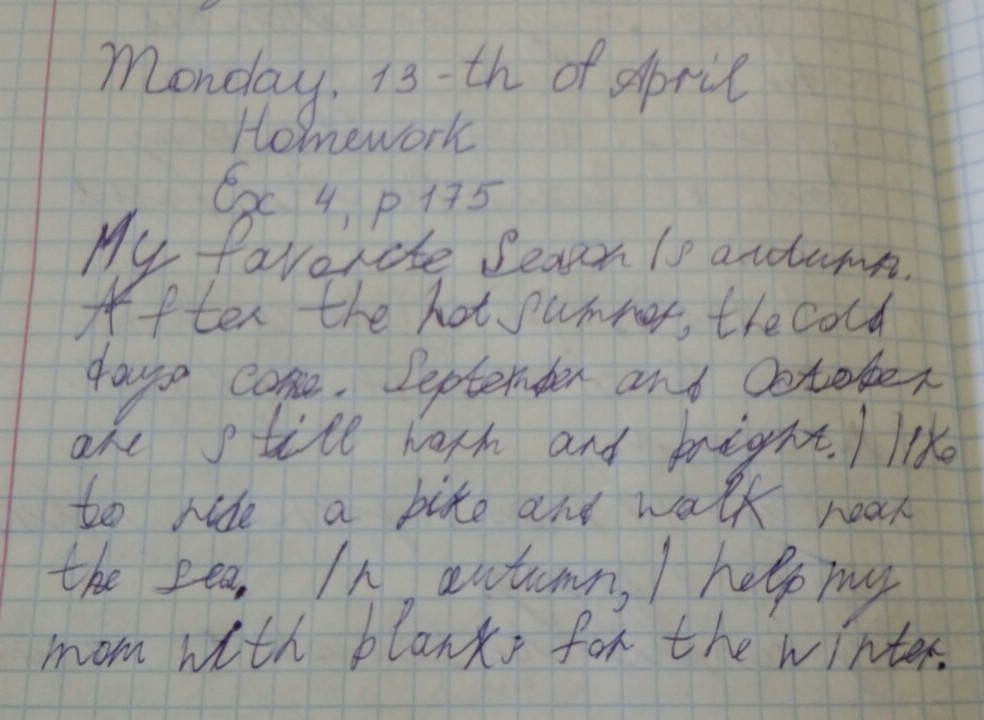 Monday, 13-th of April
Homework
Ex 4, p 175
My favorite season is autumn.
After the hot summer, the cold
days come. September and October
are still warm and bright. I like
to ride a bike and walk near
the sea. In autumn, I help my
mom with blanks for the winter.